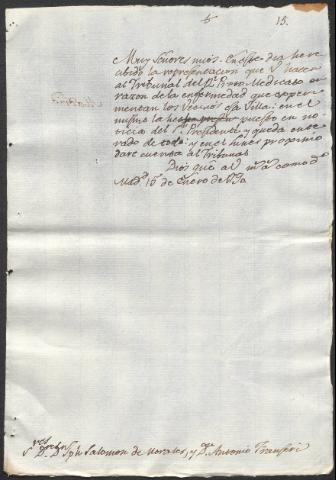 6 15.
Muy Señores mios. En este dia he re
cibido la representacion que Vs. hacen
al Tribunal del Rl. Proto Medicato en
razon de la enfermedad que experi
mentan los Vecinos de esa Villa: en el
mismo la he puesto en no
ticia del Sr. Presidente, y queda ente
rado de todo: y en el lunes proximo
dare cuenta al Tribunal
Dios gue a Vs. ms. as. como do.
Madd. 15 de Enero de
Sres. Drn. Dn. Jph Salomon de Morales, y Dn. Antonio